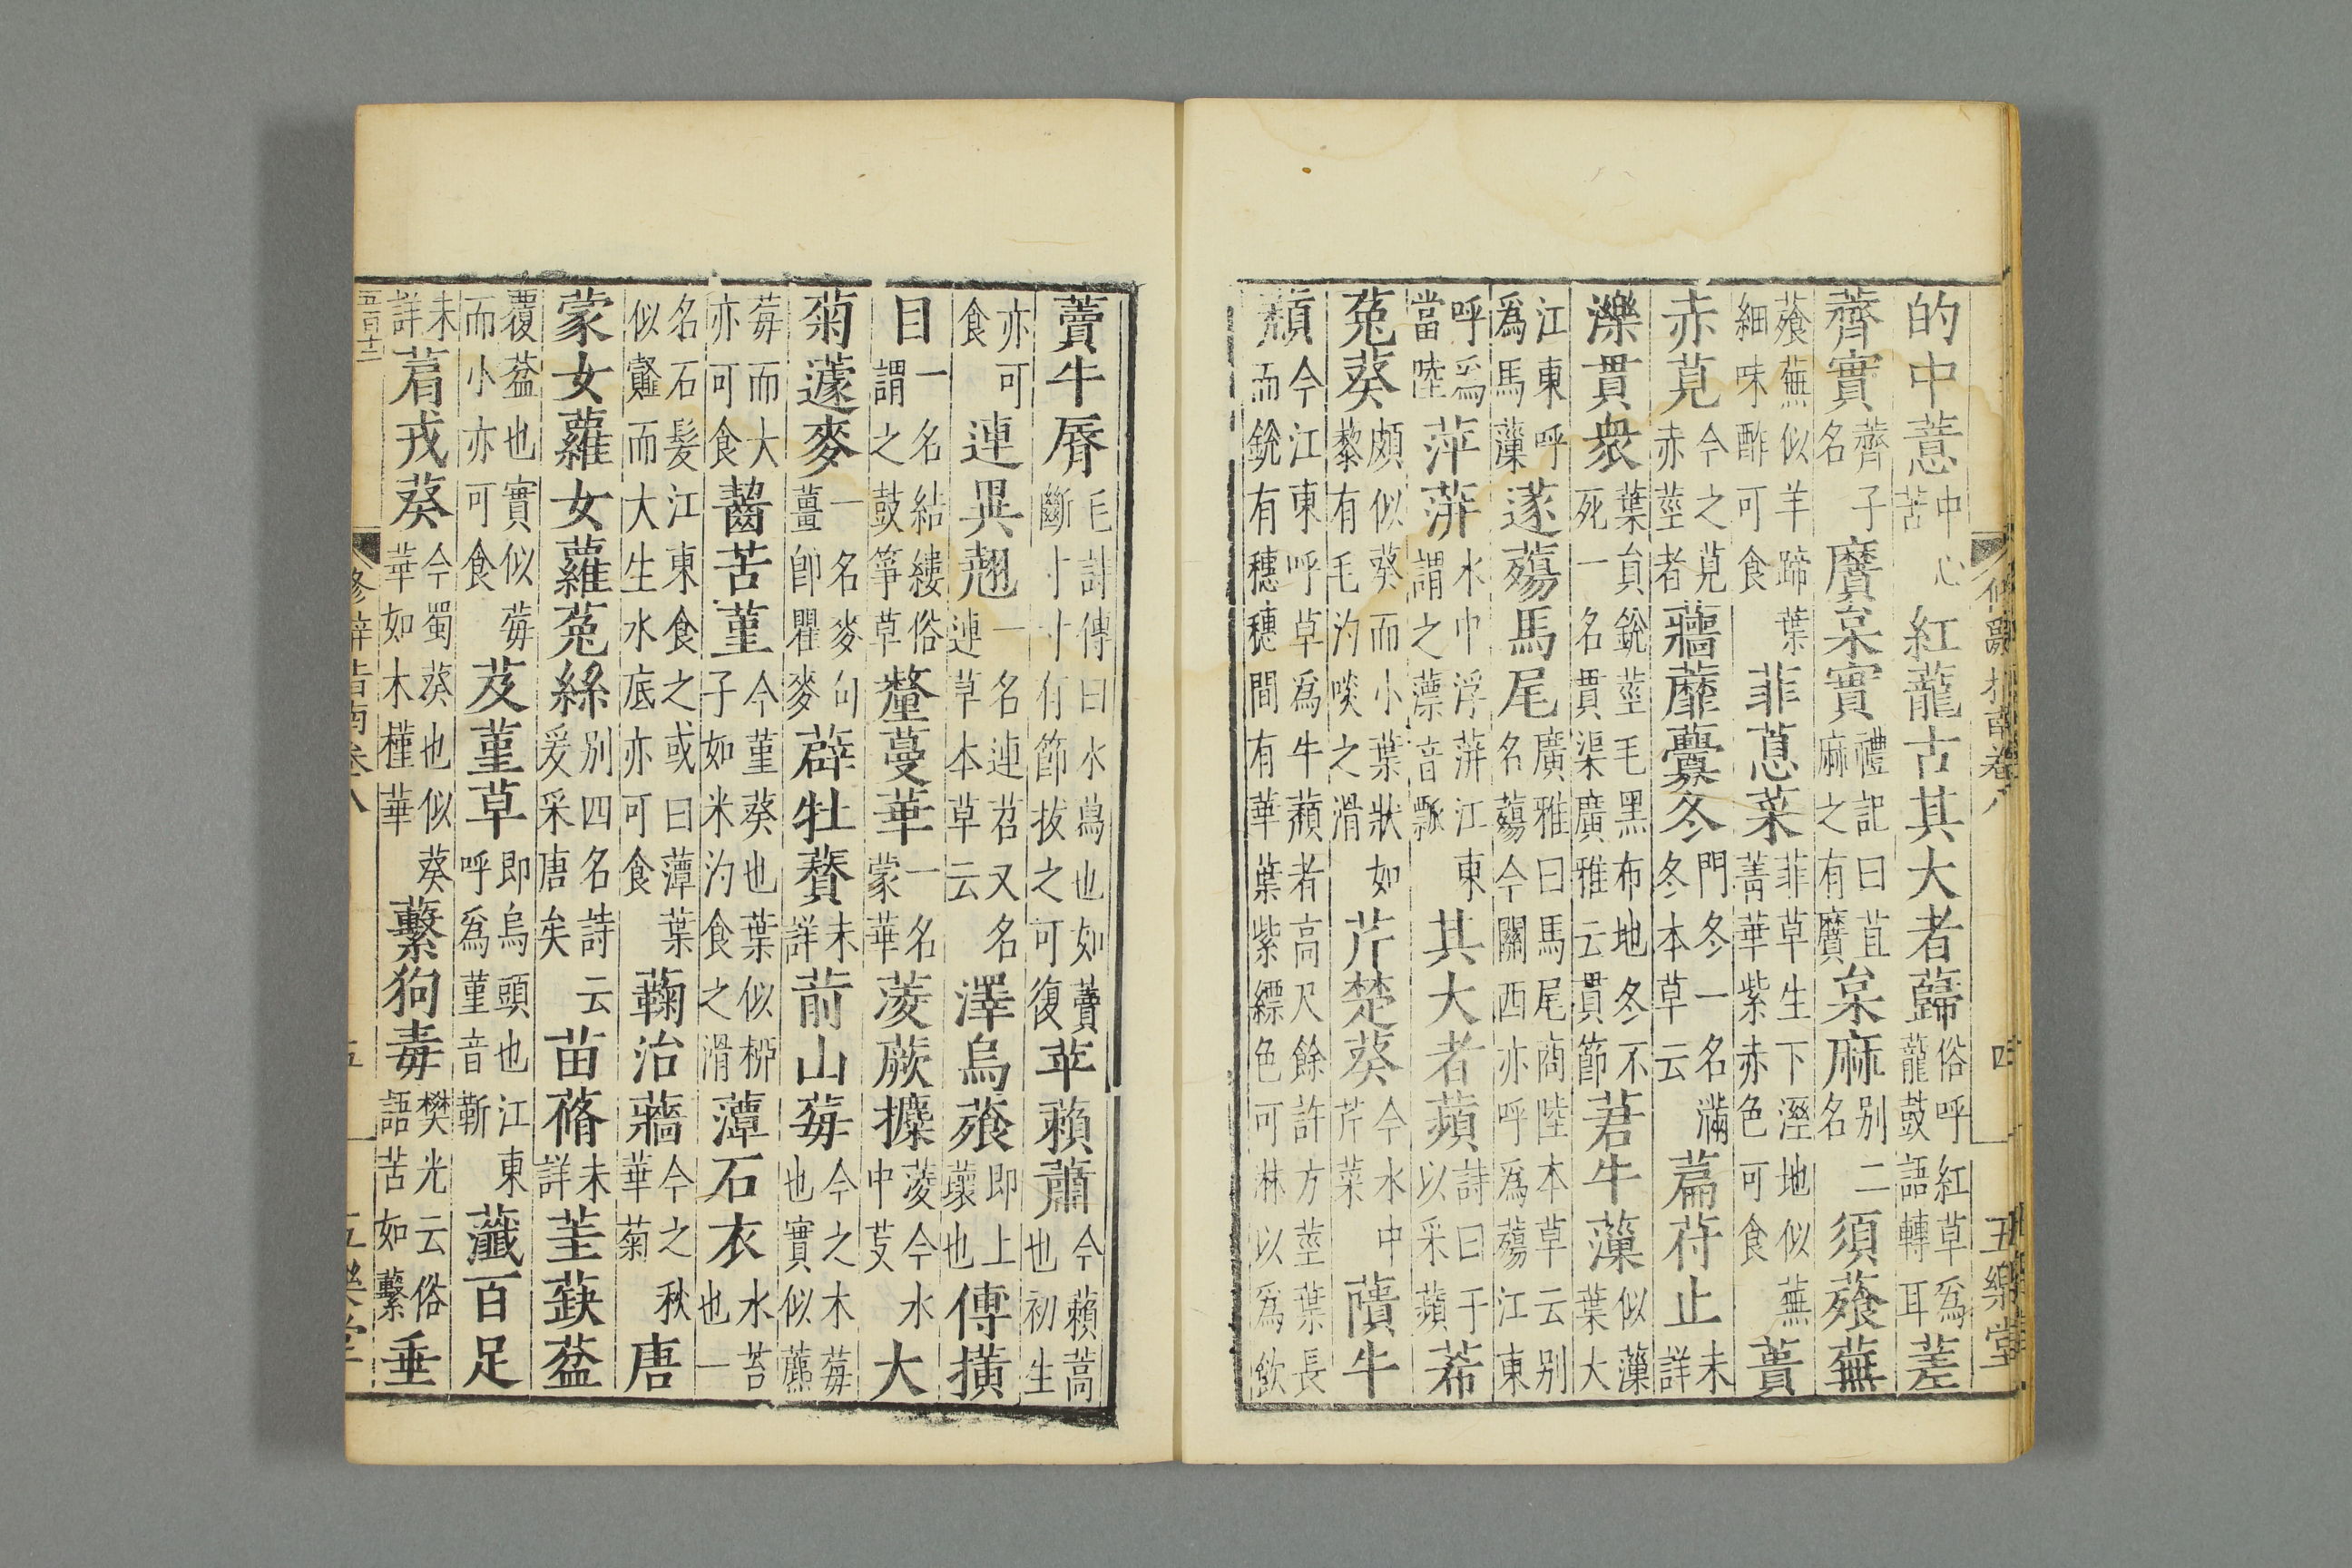 修辭指南卷八　四　五樂堂
的中薏中心苦紅蘢古其大者蘬俗呼紅草爲蘢鼓語轉耳差
薺實薺子名黂枲實禮記曰苴麻之有黂枲麻別二名須薞蕪
薞蕪似羊蹄葉細味酢可食菲蒠菜菲草生下溼地似蕪菁華紫赤色可食蕢
赤莧今之莧赤莖者蘠蘼虋冬門冬一名滿冬本草云萹苻止未詳
濼貫衆葉負銳莖毛黑布地冬不死一名貫渠廣雅云貫節莙牛藻似藻葉大
江東呼爲馬藻蓫薚馬尾廣雅曰馬尾商陸本草云别名薚今關西亦呼爲薚江東
呼爲當陸萍蓱水中浮蓱江東謂之薸音瓢其大者蘋詩曰于以采蘋莃
菟葵頗似葵而小葉狀如藜有毛汋啖之滑芹楚葵今水中芹菜藬牛
蘈今江東呼草爲牛蘈者高尺餘許方莖葉長而銳有穗穗間有華葉紫縹色可淋以爲飲
藚牛脣毛詩傳曰水蕮也如藚斷寸寸有節拔之可復苹藾蕭今藾蒿也初生
亦可食連異翹一名連苕又名連草本草云澤烏蕵即上蘾也傅橫
目一名結縷俗謂之鼓箏草釐蔓華一名蒙華菱蕨攗菱今水中芰大
菊蘧麥一名麥句薑卽瞿麥薜牡贊未詳葥山莓今之木莓也實似藨
莓而大亦可食齧苦堇今堇葵也葉似柳子如米汋食之滑藫石衣水苔也一
名石髮江東食之或曰藫葉似䪥而大生水底亦可食蘜治蘠今之秋華菊唐
蒙女蘿女蘿菟絲别四名詩云爰采唐矣苗蓨未詳茥蒛葐
覆葐也實似莓而小亦可食芨堇草即烏頭也江東呼爲堇音靳虃百足
未詳菺戎葵今蜀葵也似葵華如木槿華蘩狗毒樊光云俗語苦如蘩垂
五百十三　修辭指南卷八　五　五樂堂